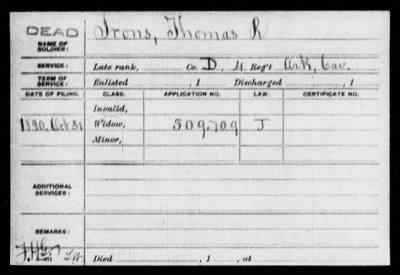 DEAD
NAME OF SOLDIER: Irons, Thomas R
SERVICE: Late rank, Co. D, 4 Reg't Ark, Cav.
TERM OF SERVICE: Enlisted , 1 Discharged , 1
DATE OF FILING. CLASS. APPLICATION NO. LAW. CERTIFICATE NO.
Invalid,
1890, Oct 31 Widow, 509.709 J
Minor,
ADDITIONAL SERVICES:
REMARKS:
Died , 1 , at